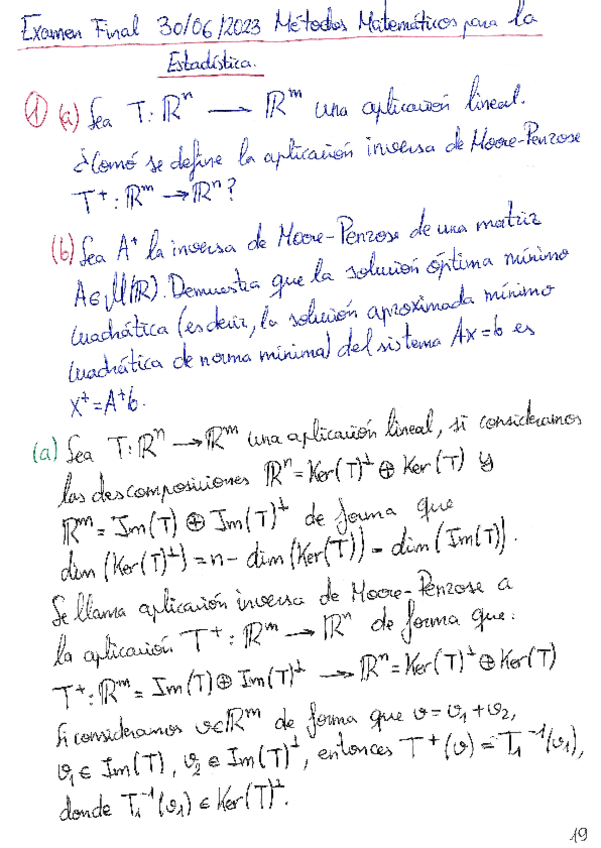 Examen Final 30/06/2023 Métodos Matemáticos para la
Estadística.
① (a) Sea T: ℝⁿ → ℝᵐ una aplicación lineal.
¿Cómo se define la aplicación inversa de Moore-Penrose
T⁺: ℝᵐ → ℝⁿ?
(b) Sea A⁺ la inversa de Moore-Penrose de una matriz
A∈ M(ℝ). Demuestra que la solución óptima mínimo
cuadrática (es decir, la solución aproximada mínimo
cuadrática de norma mínima) del sistema Ax=b es
x⁺=A⁺b.
(a) Sea T: ℝⁿ → ℝᵐ una aplicación lineal, si consideramos
las descomposiciones ℝⁿ= Ker(T)^⊥ ⊕ Ker(T) y
ℝᵐ= Im(T) ⊕ Im(T)^⊥ de forma que
dim (Ker(T)^⊥) = n - dim (Ker(T)) = dim (Im(T)).
Se llama aplicación inversa de Moore-Penrose a
la aplicación T⁺: ℝᵐ → ℝⁿ de forma que:
T⁺: ℝᵐ= Im(T) ⊕ Im(T)^⊥ → ℝⁿ= Ker(T)^⊥ ⊕ Ker(T)
Si consideramos v∈ℝᵐ de forma que v=v₁+v₂,
v₁ ∈ Im(T), v₂ ∈ Im(T)^⊥, entonces T⁺(v) = T₁⁻¹(v₁),
donde T₁⁻¹(v₁) ∈ Ker(T)^⊥.
19